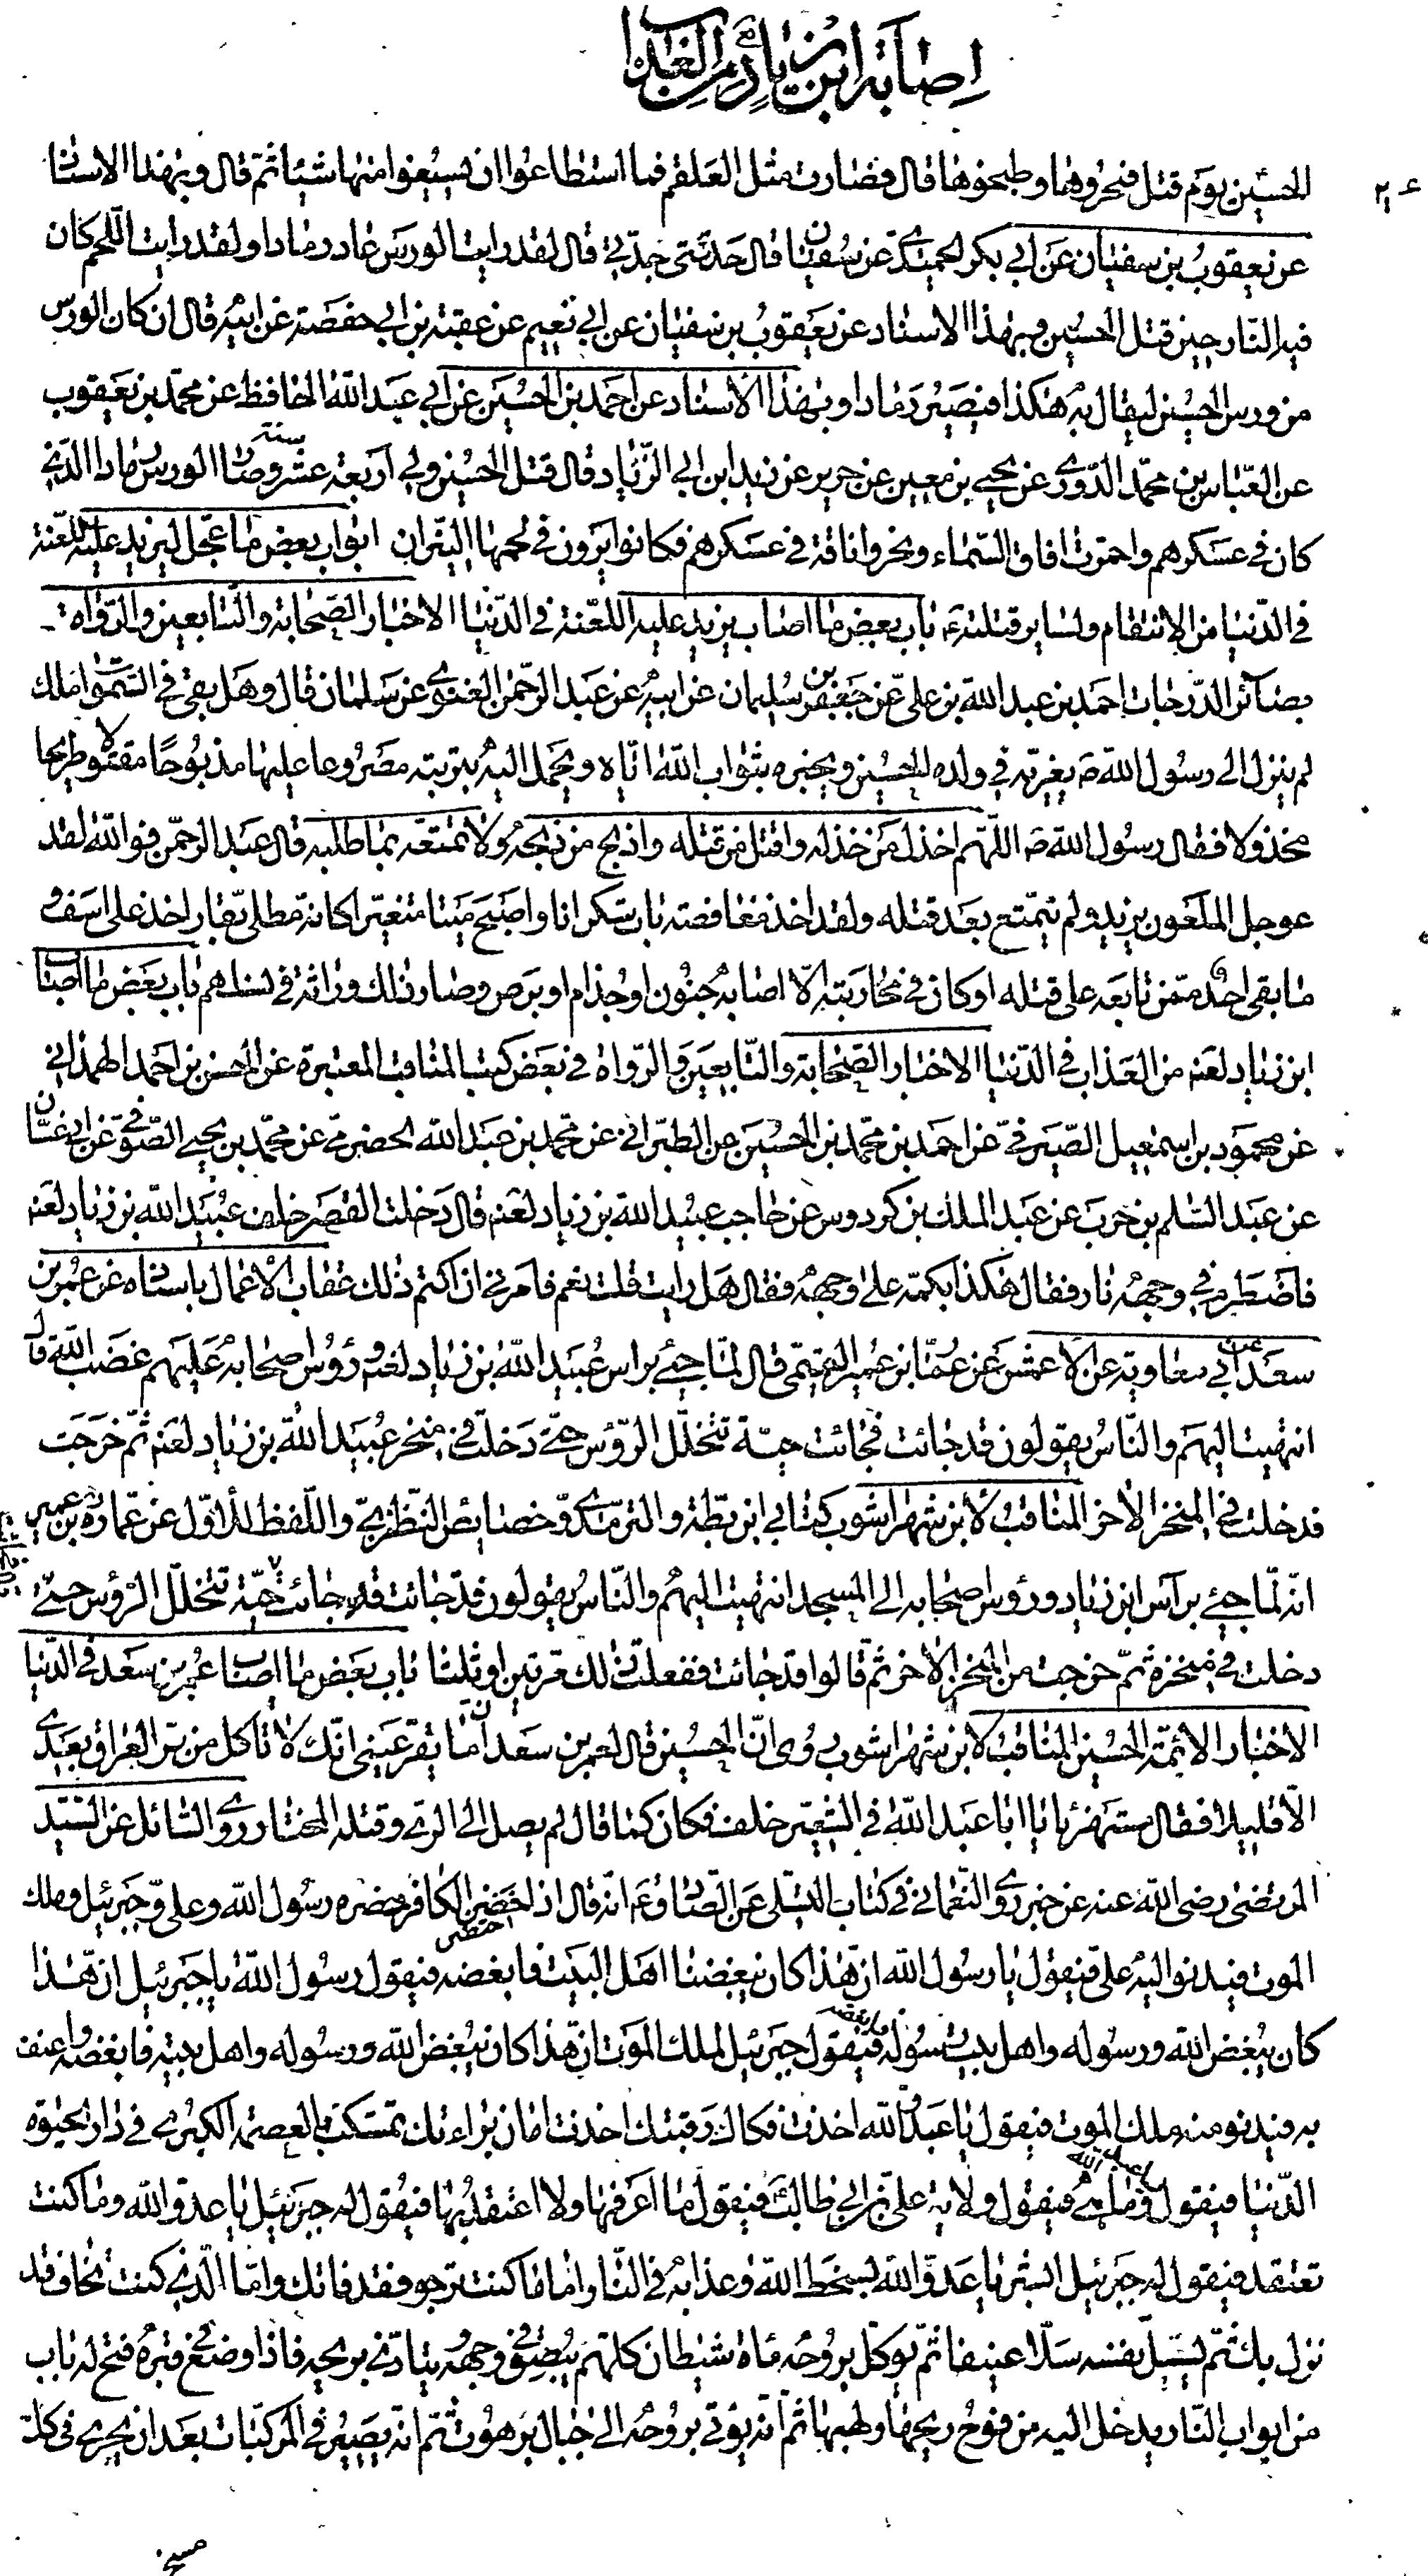 اصابة ابن زياد من العذاب
الحسين يوم قتل فنحروها وطبخوها قال فصارت مثل العلقم فما استطاعوا ان يسيغوا منها شيئا ثم قال وبهذا الاسناد
عن يعقوب بن سفيان عن ابي بكر الحميدي عن سفيان قال حدثتني جدتي قال لقد رايت الورس عاد رمادا ولقد رايت اللحم كان
فيه النار حين قتل الحسين وبهذا الاسناد عن يعقوب بن سفيان عن ابي نعيم عن عقبة بن ابي حفصة عن ابيه قال ان كان الورس
من ورس الحسين ليقال به هكذا فيصير رمادا وبهذا الاسناد عن احمد بن الحسين عن ابي عبد الله الحافظ عن محمد بن يعقوب
عن العباس بن محمد الدوري عن يحيى بن معين عن جرير عن زيد ابن ابي الزناد قال قتل الحسين ولي اربعة عشر سنة وصار الورس رمادا الذي
كان في عسكرهم واحمرت افاق السماء ونحروا ناقة في عسكرهم فكانوا يرون في لحمها النيران ابواب بعض ما عجل ليزيد عليه اللعنة
في الدنيا من الانتقام ولساير قتلته باب بعض ما اصاب يزيد عليه اللعنة في الدنيا الاخبار الصحابة والتابعين والرواة
بصائر الدرجات احمد بن عبد الله بن علي عن جعفر بن سليمان عن ابيه عن عبد الرحمن الغنوي عن سلمان قال وهل بقي في السموات ملك
لم ينزل الى رسول الله ص يعزيه في ولده الحسين ويخبره بثواب الله اياه ويحمل اليه تربته مصروعا عليها مذبوحا مقتولا طريحا
مخذولا فقال رسول الله ص اللهم اخذل من خذله واقتل من قتله واذبح من ذبحه ولا تمتعه بما طلب قال عبد الرحمن فوالله لقد
عوجل الملعون يزيد ولم يتمتع بعد قتله ولقد اخذ مغافصة بات سكرانا واصبح ميتا متغيرا كانه مطلي بقار اخذ على اسف و
ما بقي احد ممن تابعه على قتله او كان في محاربته الا اصابه جنون او جذام او برص وصار ذلك وراثة في نسلهم باب بعض ما اصاب
ابن زياد لعنه من العذاب في الدنيا الاخبار الصحابة والتابعين والرواة في بعض كتب المناقب المعتبرة عن الحسن بن احمد الهمداني
عن محمود بن اسمعيل الصيرفي عن احمد بن محمد بن الحسين عن الطبراني عن محمد بن عبد الله الحضرمي عن محمد بن يحيى الصوفي عن ابي غسان
عن عبد السلم بن حرب عن عبد الملك بن كردوس عن حاجب عبيد الله بن زياد لعنه قال دخلت القصر خلف عبيد الله بن زياد لعنه
فاضطرم في وجهه نار فقال هكذا بكمه على وجهه فقال هل رايت قلت نعم فامرني ان اكتم ذلك عقاب الاعمال باسناده عن عمر بن
سعد عن ابي معاوية عن الاعمش عن عمار بن عمير التميمي قال لما جئ براس عبيد الله بن زياد لعنه ورؤس اصحابه عليهم غضب الله قال
انتهيت اليهم والناس يقولون قد جائت فجائت حية تتخلل الرؤس حتى دخلت في منخر عبيد الله بن زياد لعنه ثم خرجت
فدخلت في المنخر الاخر المناقب لابن شهراشوب كتابي ابن بطة والترمذي وخصايص النطنزي واللفظ للاول عن عمارة بن عمير
انه لما جئ براس ابن زياد ورؤس اصحابه الى المسجد انتهيت اليهم والناس يقولون قد جائت قد جائت حية تتخلل الرؤس حتى
دخلت في منخره ثم خرجت من المنخر الاخر ثم قالوا قد جائت ففعلت ذلك مرتين او ثلثا باب بعض ما اصاب عمر بن سعد في الدنيا
الاخبار الائمة الحسين المناقب لابن شهراشوب روى ان الحسين قال لعمر بن سعد ان مما يقر عيني انك لا تاكل من بر العراق بعدي
الا قليلا فقال مستهزئا يا ابا عبد الله في الشعير خلف فكان كما قال لم يصل الى الري وقتله المختار روى السائل عن السيد
المرتضى رضي الله عنه عن خبر روى النعماني في كتاب التسلي عن الصادق ع انه قال اذا احتضر الكافر حضره رسول الله وعلي وجبرئيل وملك
الموت فيدنو اليه علي فيقول يا رسول الله ان هذا كان يبغضنا اهل البيت فابغضه فيقول رسول الله يا جبرئيل ان هذا
كان يبغض الله ورسوله واهل بيت رسوله فابغضه فيقول جبرئيل لملك الموت ان هذا كان يبغض الله ورسوله واهل بيته فابغضه واعنف
به فيدنو منه ملك الموت فيقول يا عبد الله اخذت فكاك رقبتك اخذت امان براءتك تمسكت بالعصمة الكبرى في دار الحيوة
الدنيا فيقول وما هي فيقول ولاية علي بن ابي طالب فيقول ما اعرفها ولا اعتقد بها فيقول له جبرئيل يا عدو الله وما كنت
تعتقد فيقول له جبرئيل ابشر يا عدو الله بسخط الله وعذابه في النار واما ما كنت ترجو فقد فاتك واما الذي كنت تخاف قد
نزل بك ثم يسل نفسه سلا عنيفا ثم يوكل بروحه مائة شيطان كلهم يبصق في وجهه يتاذى بريحه فاذا وضع في قبره فتح له باب
من ابواب النار يدخل اليه من فوح ريحها ولهبها ثم انه يؤتى بروحه الى جبال برهوت ثم انه يصير في المركبات بعد ان يجري في كل